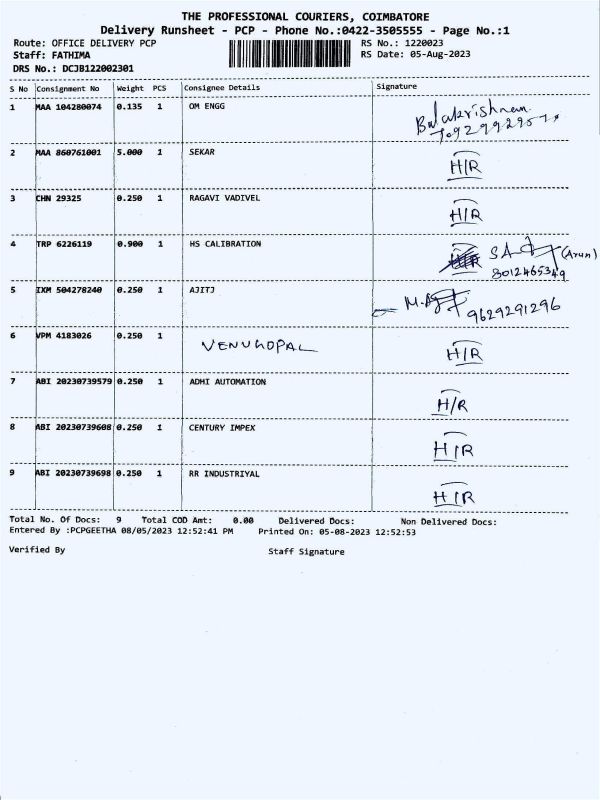 THE PROFESSIONAL COURIERS, COIMBATORE
Delivery Runsheet - PCP - Phone No.:0422-3505555 - Page No.:1
Route: OFFICE DELIVERY PCP RS No.: 1220023
Staff: FATHIMA RS Date: 05-Aug-2023
DRS No.: DCJB122002301
S No Consignment No Weight PCS Consignee Details Signature
1 MAA 104280074 0.135 1 OM ENGG Balakrishnan
2 MAA 860761001 5.000 1 SEKAR H/R
3 CHN 29325 0.250 1 RAGAVI VADIVEL H/R
4 TRP 6226119 0.900 1 HS CALIBRATION (Arun)
8012465349
5 IXM 504278240 0.250 1 AJITJ
9629291296
6 VPM 4183026 0.250 1 VENUGOPAL H/R
7 ABI 20230739579 0.250 1 ADHI AUTOMATION H/R
8 ABI 20230739608 0.250 1 CENTURY IMPEX H/R
9 ABI 20230739698 0.250 1 RR INDUSTRIYAL H/R
Total No. Of Docs: 9 Total COD Amt: 0.00 Delivered Docs: Non Delivered Docs:
Entered By :PCPGEETHA 08/05/2023 12:52:41 PM Printed On: 05-08-2023 12:52:53
Verified By Staff Signature